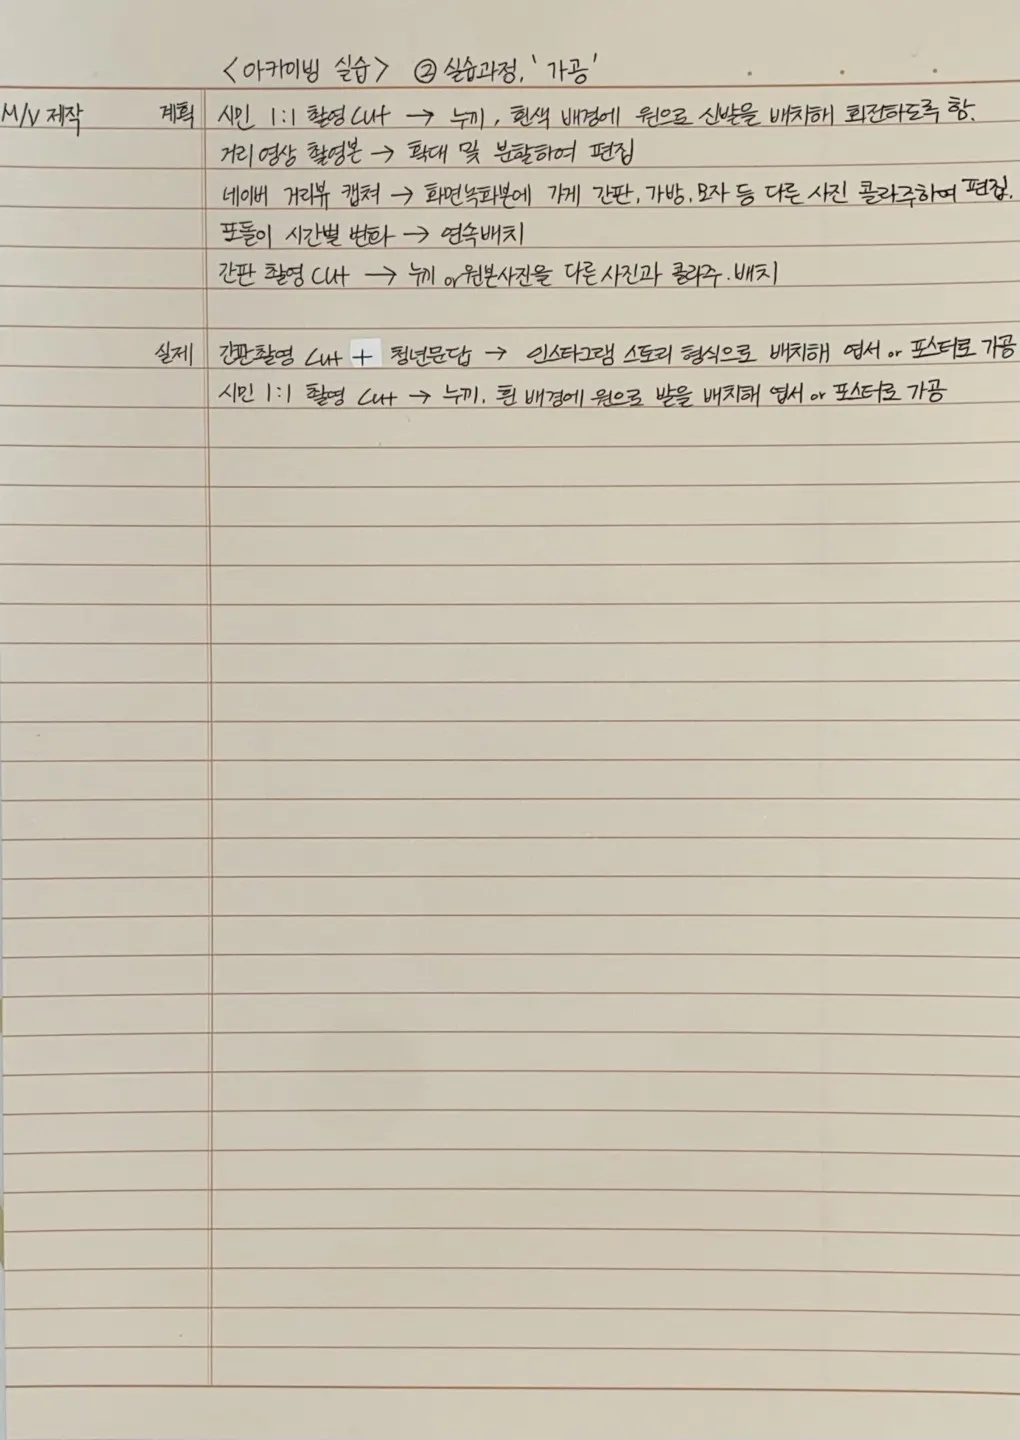 <아카이빙 실습> ② 실습과정, '가공'
M/V 제작 계획 시민 1:1 촬영 Cut → 누끼, 흰색 배경에 원으로 신발을 배치해 회전하도록 함.
거리 영상 촬영본 → 확대 및 분할하여 편집
네이버 거리뷰 캡쳐 → 화면녹화본에 가게 간판, 가방, 모자 등 다른 사진 콜라주하여 편집.
포돌이 시간별 변화 → 연속배치
간판 촬영 Cut → 누끼 or 원본사진을 다른 사진과 콜라주. 배치
실제 간판촬영 Cut + 청년문답 → 인스타그램 스토리 형식으로 배치해 엽서 or 포스터로 가공
시민 1:1 촬영 Cut → 누끼, 흰 배경에 원으로 발을 배치해 엽서 or 포스터로 가공